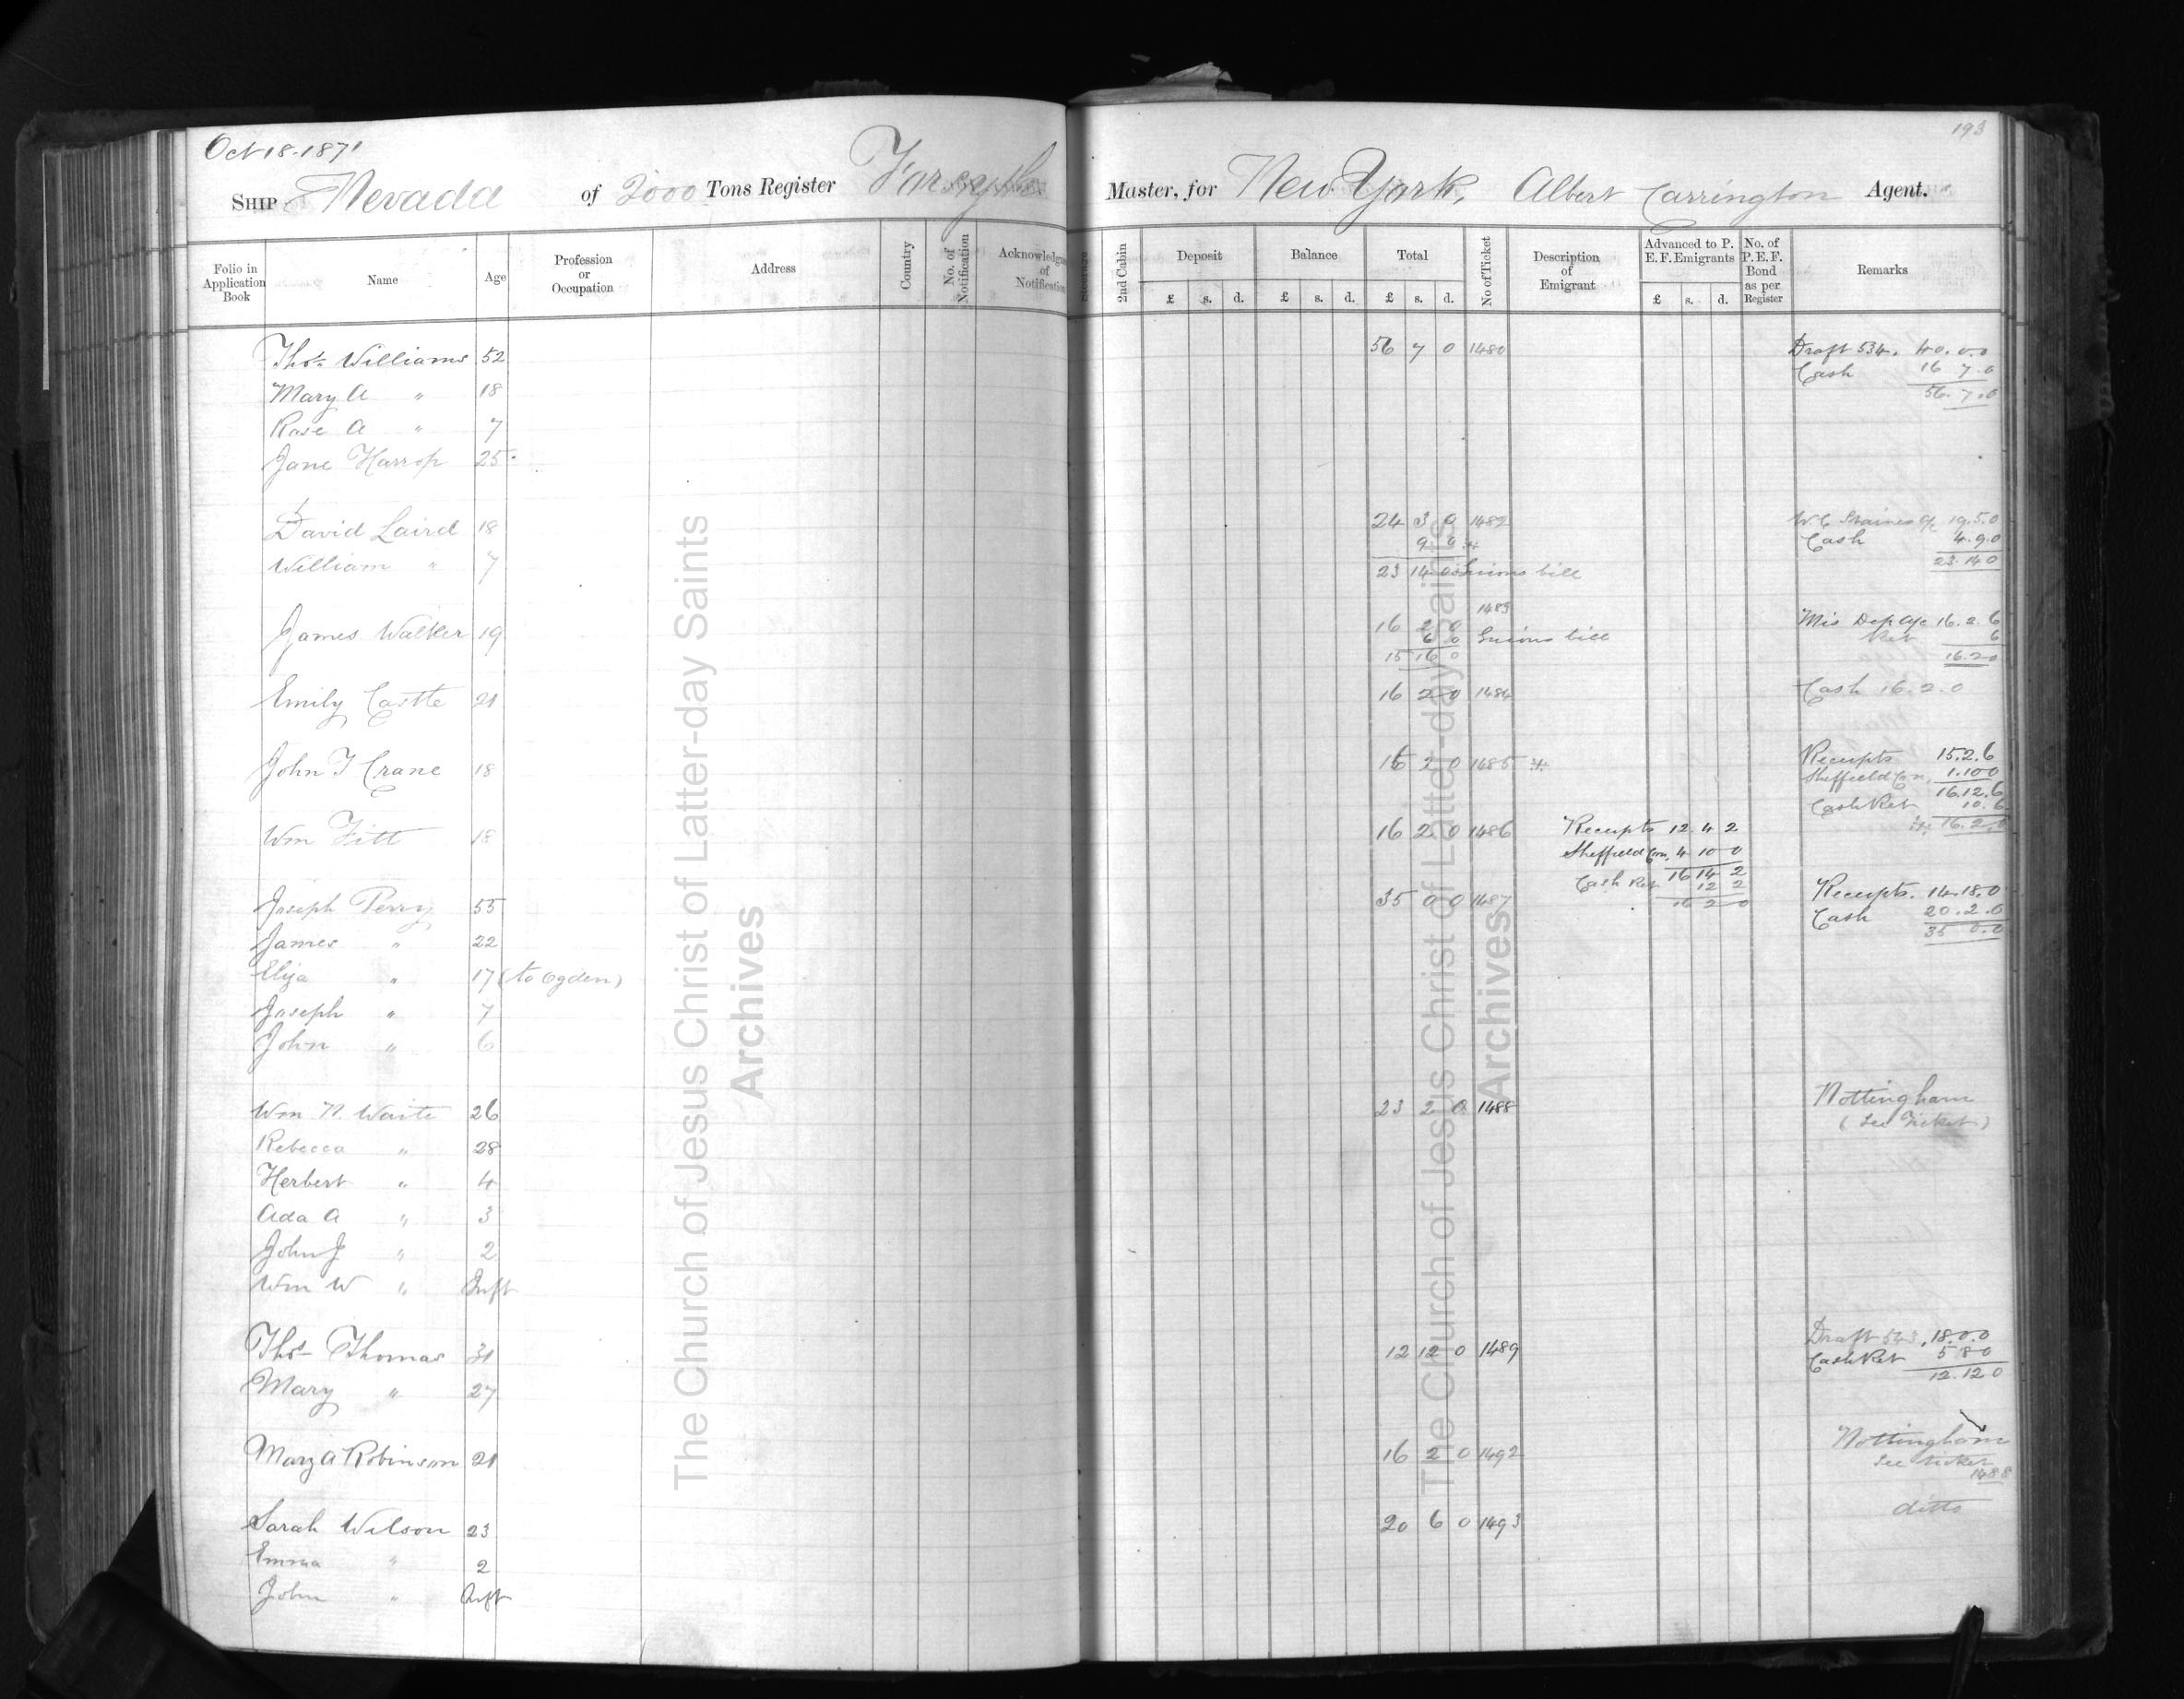 193
Oct 18-1871
SHIP Nevada of 2000 Tons Register Forsyth Master, for New York, Albert Carrington Agent.
Folio in Application Book Name Age Profession or Occupation Address Country No. of Notification Acknowledgm of Notification Steerage 2nd Cabin Deposit £ s. d. Balance £ s. d. Total £ s. d. No of Ticket Description of Emigrant Advanced to P. E. F. Emigrants £ s. d. No. of P. E. F. Bond as per Register Remarks
Thos Williams 52 56 7 0 1480 Draft 534. 40.0.0
Cash 16 7.0
Mary A " 18 56.7.0
Rose A " 7
Jane Harrop 25
David Laird 18 24 3 0 1482 W C Staines a/c 19.5.0
9 0 Cash 4.9.0
William " 7 23 14 0 Guions bill 23.14 0
1483
James Walker 19 16 2 0 Mis Dep a/c 16.2.6
6 0 Guions bill Ret 6
15 16 0 16.2.0
Emily Castle 21 16 2 0 1484 Cash 16.2.0
John T Crane 18 16 2 0 1485 Receipts 15.2.6
Sheffield Con. 1.10 0
16.12.6
Cash Ret 10.6
16.2.0
Wm Fitt 18 16 2 0 1486 Receipts 12 4 2
Sheffield Con. 4 10 0
16 14 2
Cash Ret 12 2
16 2 0
Joseph Perry 55 35 0 0 1487 Receipts. 14.18.0
Cash 20.2.0
James " 22 35 0.0
Eliza " 17 (to Ogden)
Joseph " 7
John " 6
Wm N. Waite 26 23 2 0 1488 Nottingham
(See Ticket)
Rebecca " 28
Herbert " 4
Ada A " 3
John J " 2
Wm W " Inft
Thos Thomas 31 12 12 0 1489 Draft 543, 18.0.0
Cash Ret 5 8 0
Mary " 27 12.12 0
Mary A Robinson 21 16 2 0 1492 Nottingham
See ticket
1488
Sarah Wilson 23 20 6 0 1493 ditto
Emma " 2
John " Inft
The Church of Jesus Christ of Latter-day Saints
Archives
The Church of Jesus Christ of Latter-day Saints
Archives